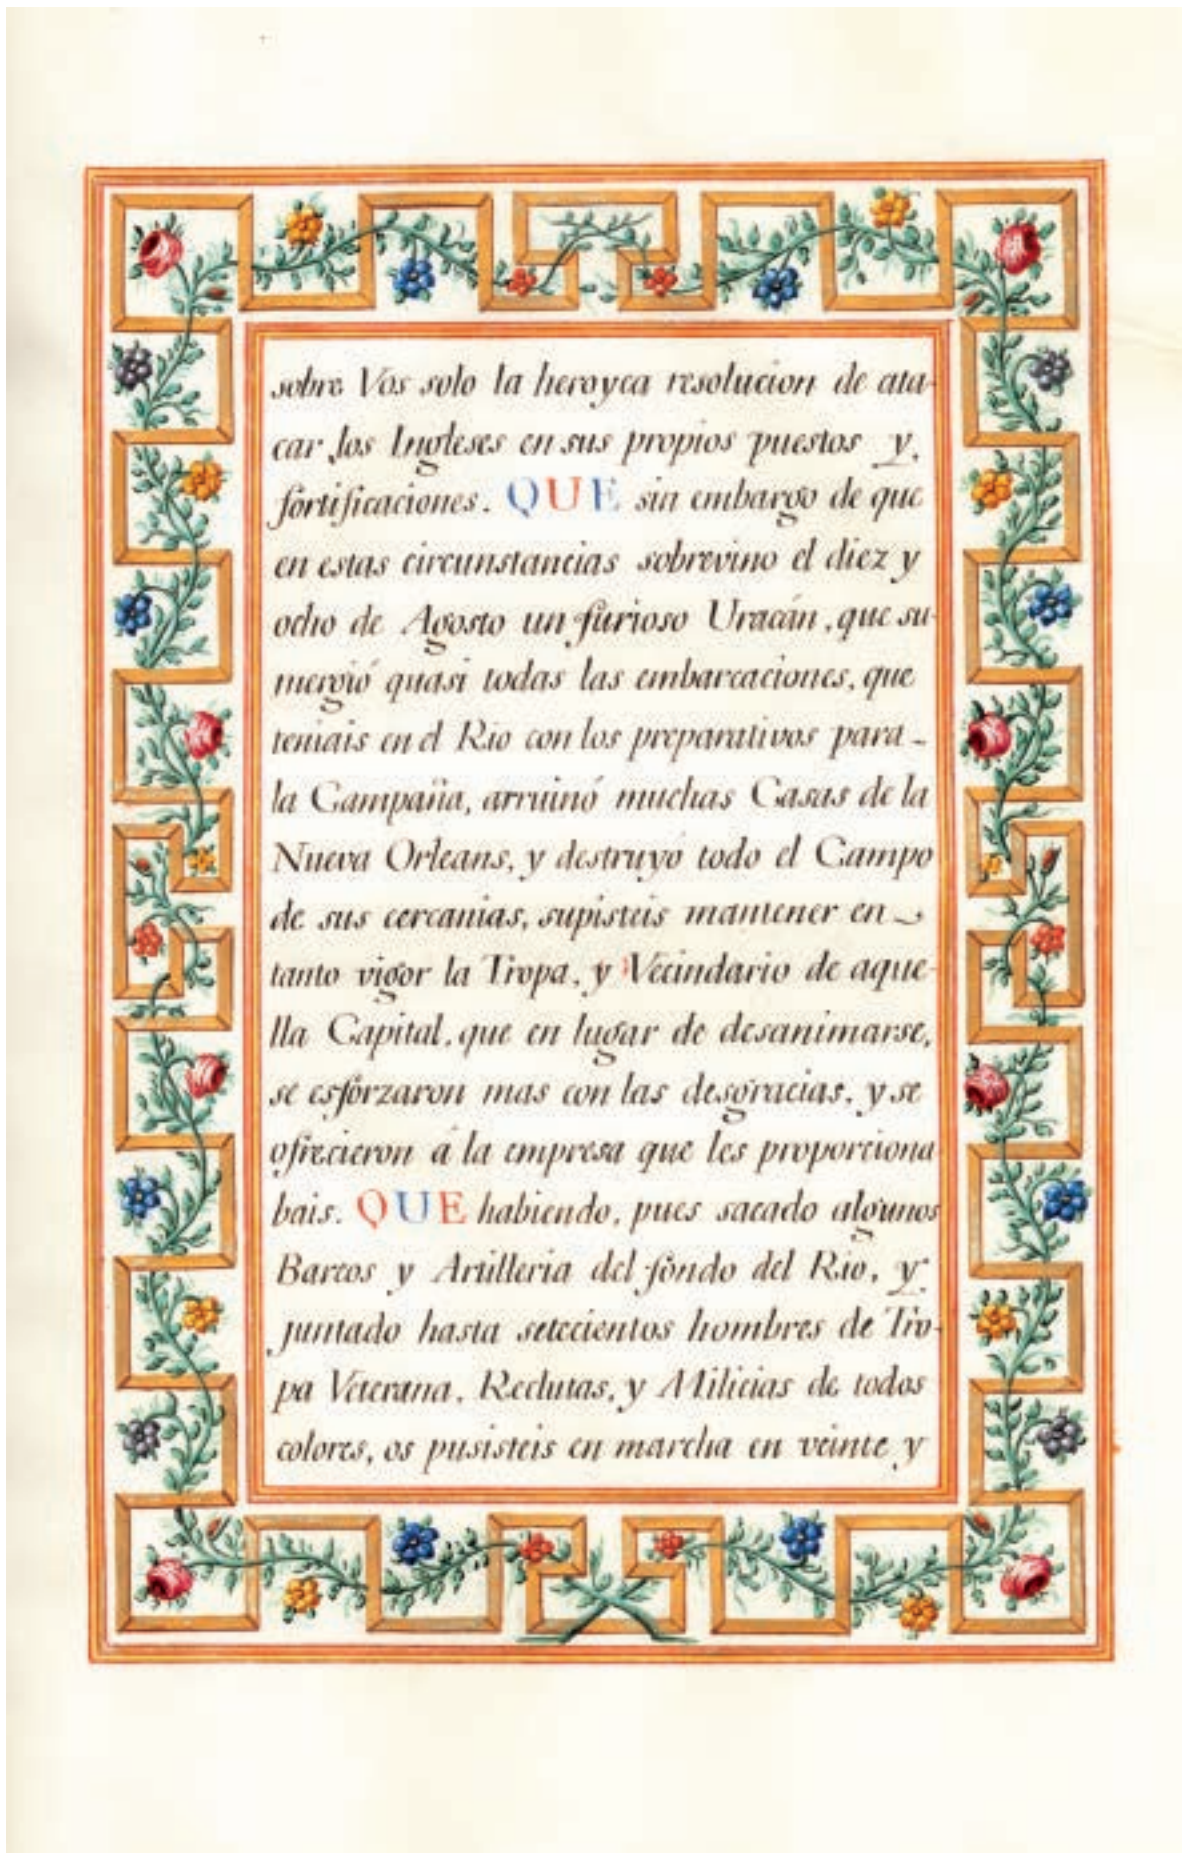 sobre Vos solo la heroyca resolucion de ata-
car los Ingleses en sus propios puestos y
fortificaciones. QUE sin embargo de que
en estas circunstancias sobrevino el diez y
ocho de Agosto un furioso Uracán, que su-
mergió quasi todas las embarcaciones, que
teniais en el Rio con los preparativos para
la Campaña, arruinó muchas Casas de la
Nueva Orleans, y destruyó todo el Campo
de sus cercanias, supisteis mantener en
tanto vigor la Tropa, y Vecindario de aque-
lla Capital, que en lugar de desanimarse,
se esforzaron mas con las desgracias, y se
ofrecieron á la empresa que les proporciona
bais. QUE habiendo, pues sacado algunos
Barcos y Artilleria del fondo del Rio, y
juntado hasta setecientos hombres de Tro-
pa Veterana, Reclutas, y Milicias de todos
colores, os pusisteis en marcha en veinte y